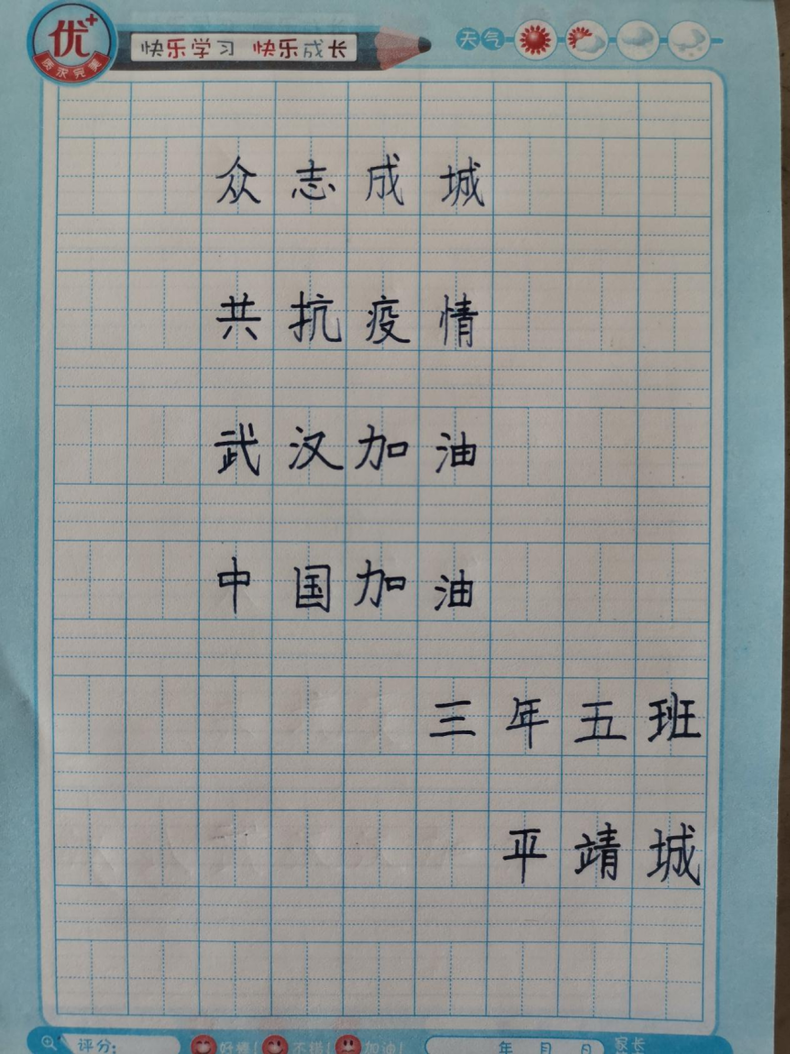 优+
质次完美
快乐学习 快乐成长
天气
众志成城
共抗疫情
武汉加油
中国加油
三年五班
平靖城
评分: 好棒! 不错! 加油! 年 月 日 家长